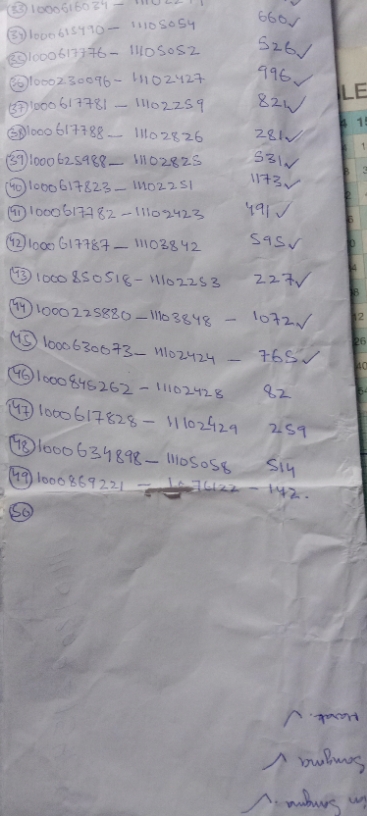 (34) 1000615490 - 11105054 660✓
(35) 1000617776 - 11105052 526✓
(36) 1000230096 - 11102427 996✓
(37) 1000617781 - 11102259 821✓
(38) 1000617788 - 11102826 281✓
(39) 1000625988 - 11102825 531✓
(40) 1000617823 - 11102251 1173✓
(41) 1000617782 - 11102423 491✓
(42) 1000617787 - 11103842 595✓
(43) 1000850518 - 11102253 227✓
(44) 1000225880 - 11103848 - 1072✓
(45) 1000630073 - 11102424 - 765✓
(46) 1000846262 - 11102428 82
(47) 1000617828 - 11102429 259
(48) 1000634898 - 11105058 514
(49) 1000869221 - 1076122 - 142.
(50)
Sangma ✓
Sangma ✓